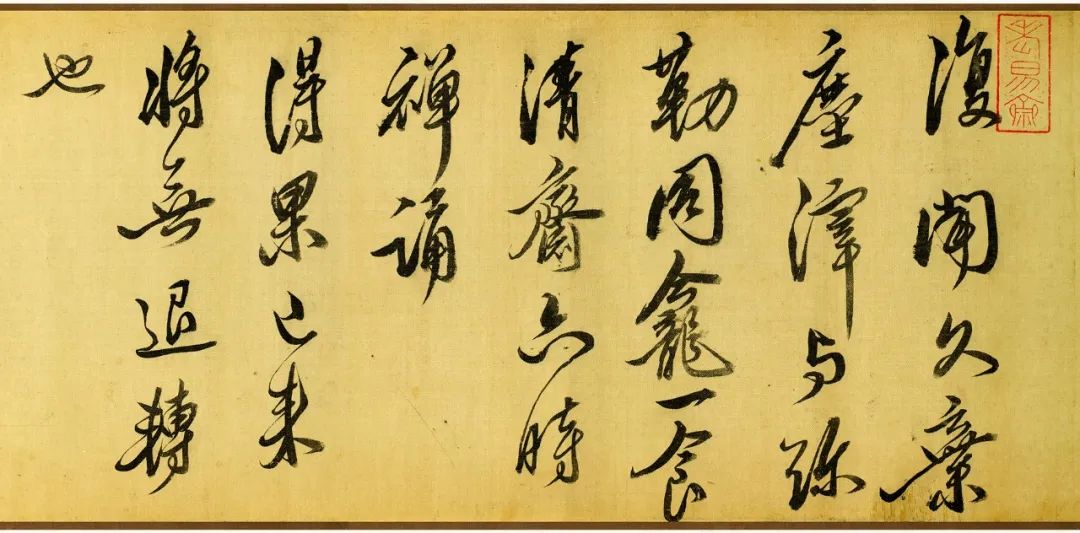 復聞久棄
塵滓与弥
勒同龕一食
清齋六時
禪誦
得果已來
將無退轉
也